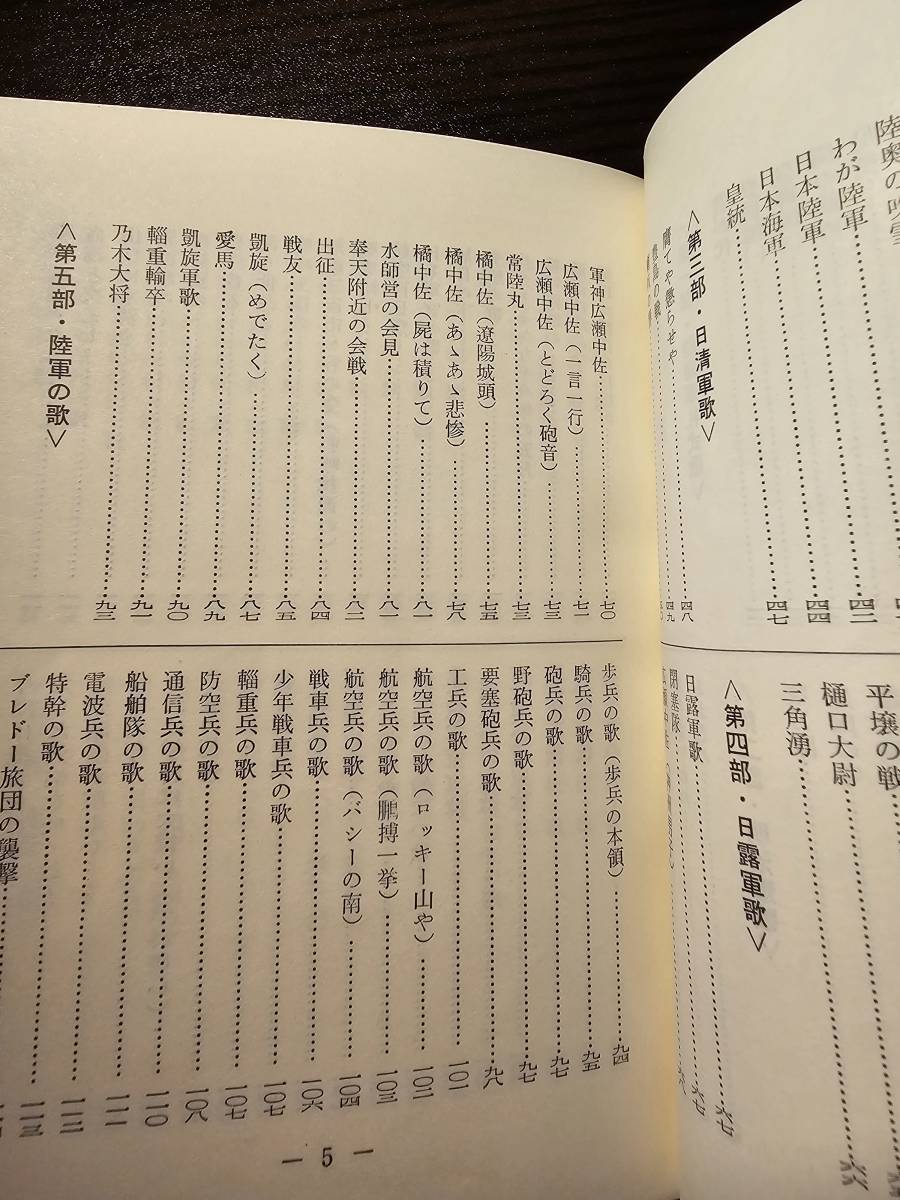 わが陸軍……四二
日本陸軍……四四
日本海軍……四七
皇統
〈第三部・日清軍歌〉
膺てや懲らせや……四八
平壌の戦
樋口大尉
三角湧
〈第四部・日露軍歌〉
日露軍歌……六七
閉塞隊……六七
軍神広瀬中佐……七〇
広瀬中佐（一言一行）……七一
広瀬中佐（とどろく砲音）……七三
常陸丸……七三
橘中佐（遼陽城頭）……七五
橘中佐（あゝあゝ悲惨）……七八
橘中佐（屍は積りて）……八一
水師営の会見……八一
奉天附近の会戦……八二
出征……八四
戦友……八五
凱旋（めでたく）……八七
愛馬……八九
凱旋軍歌……九〇
輜重輸卒……九一
乃木大将……九三
〈第五部・陸軍の歌〉
歩兵の歌（歩兵の本領）……九四
騎兵の歌……九五
砲兵の歌……九七
野砲兵の歌……九七
要塞砲兵の歌……九八
工兵の歌……一〇一
航空兵の歌（ロッキー山や）……一〇二
航空兵の歌（鵬搏一挙）……一〇三
航空兵の歌（バシーの南）……一〇四
戦車兵の歌……一〇六
少年戦車兵の歌……一〇七
輜重兵の歌……一〇七
防空兵の歌……一〇八
通信兵の歌……一一〇
船舶隊の歌……一一一
電波兵の歌……一一二
特幹の歌……一一三
ブレドー旅団の襲撃
— 5 —